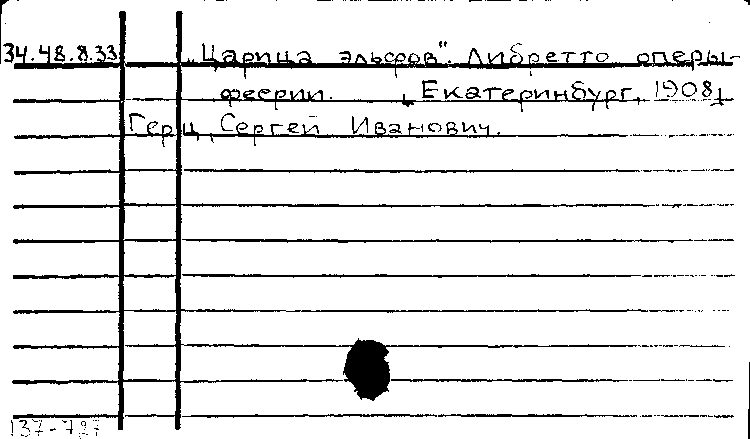 34.48.8.33 „Царица эльфов". Либретто оперы-
феерии. [Екатеринбург, 1908]
Герц, Сергей Иванович.
137-727